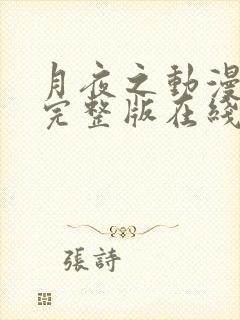 月夜之動漫
完整版在綫
張詩